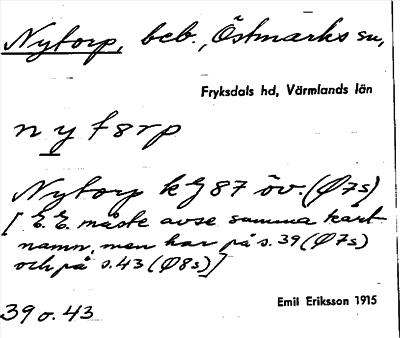 Nytorp, beb., Östmarks sn,
Fryksdals hd, Värmlands län
nytorp
Nytorp k G 87 öv. (Ø7s)
[E. E. måste avse samma kart-
namn, men har på s. 39 (Ø7s)
och på s. 43 (Ø8s)]
Emil Eriksson 1915
39 o. 43